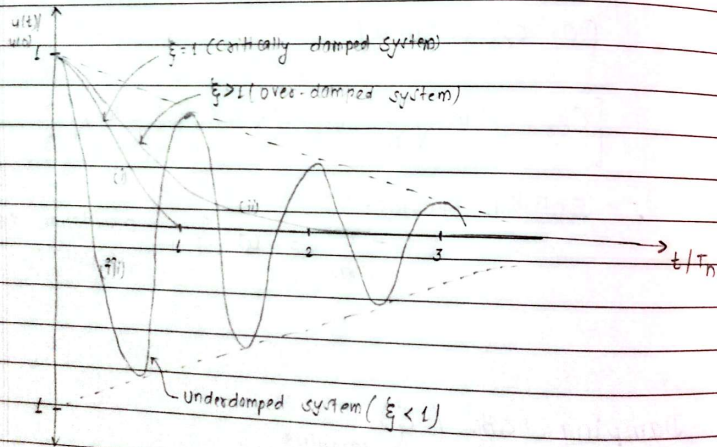 u(t)/
u(o)
1
ξ=1 (critically damped system)
ξ>1 (over-damped system)
(i)
(ii)
1
2
3
t/Tn
(iii)
1
underdamped system (ξ<1)